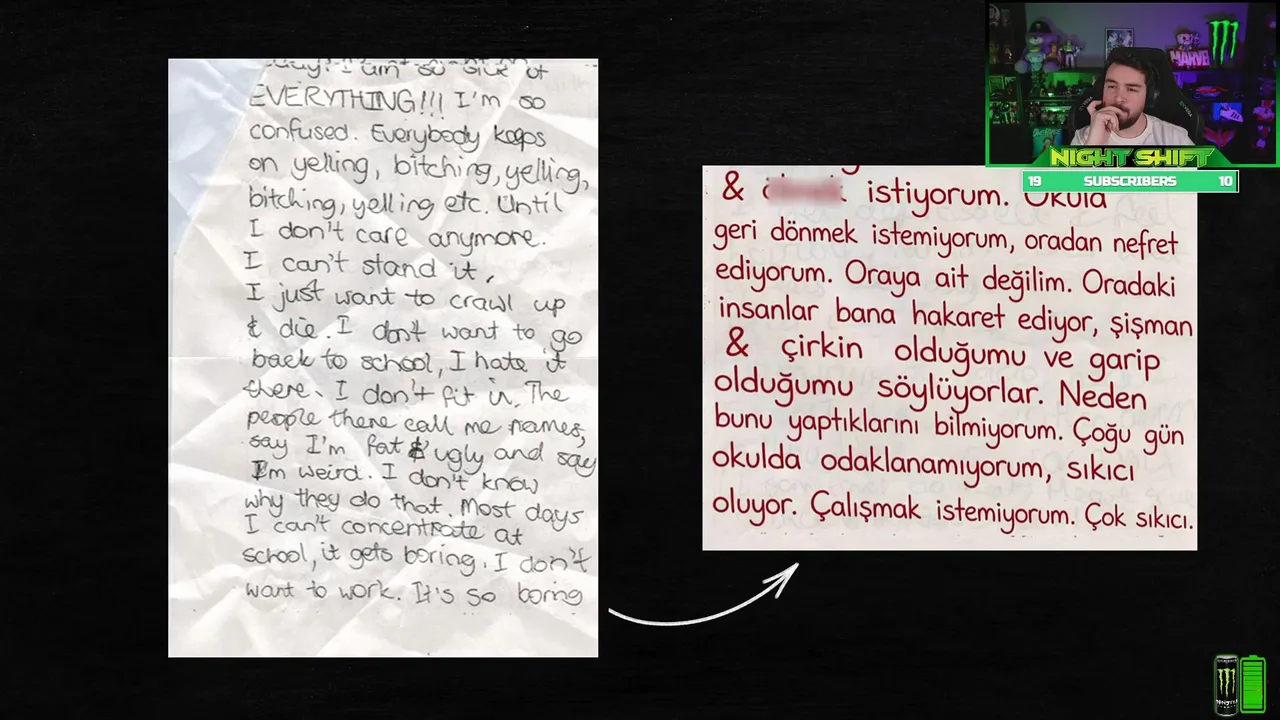 EVERYTHING!!! I'm so
confused. Everybody keeps
on yelling, bitching, yelling,
bitching, yelling etc. Until
I don't care anymore.
I can't stand it,
I just want to crawl up
& die. I don't want to go
back to school, I hate it
there. I don't fit in. The
people there call me names,
say I'm fat & ugly and say
I'm weird. I don't know
why they do that. Most days
I can't concentrate at
school, it gets boring. I don't
want to work. It's so boring
& istiyorum. Okula
geri dönmek istemiyorum, oradan nefret
ediyorum. Oraya ait değilim. Oradaki
insanlar bana hakaret ediyor, şişman
& çirkin olduğumu ve garip
olduğumu söylüyorlar. Neden
bunu yaptıklarını bilmiyorum. Çoğu gün
okulda odaklanamıyorum, sıkıcı
oluyor. Çalışmak istemiyorum. Çok sıkıcı.
MARVEL
NIGHT SHIFT
19 SUBSCRIBERS 10